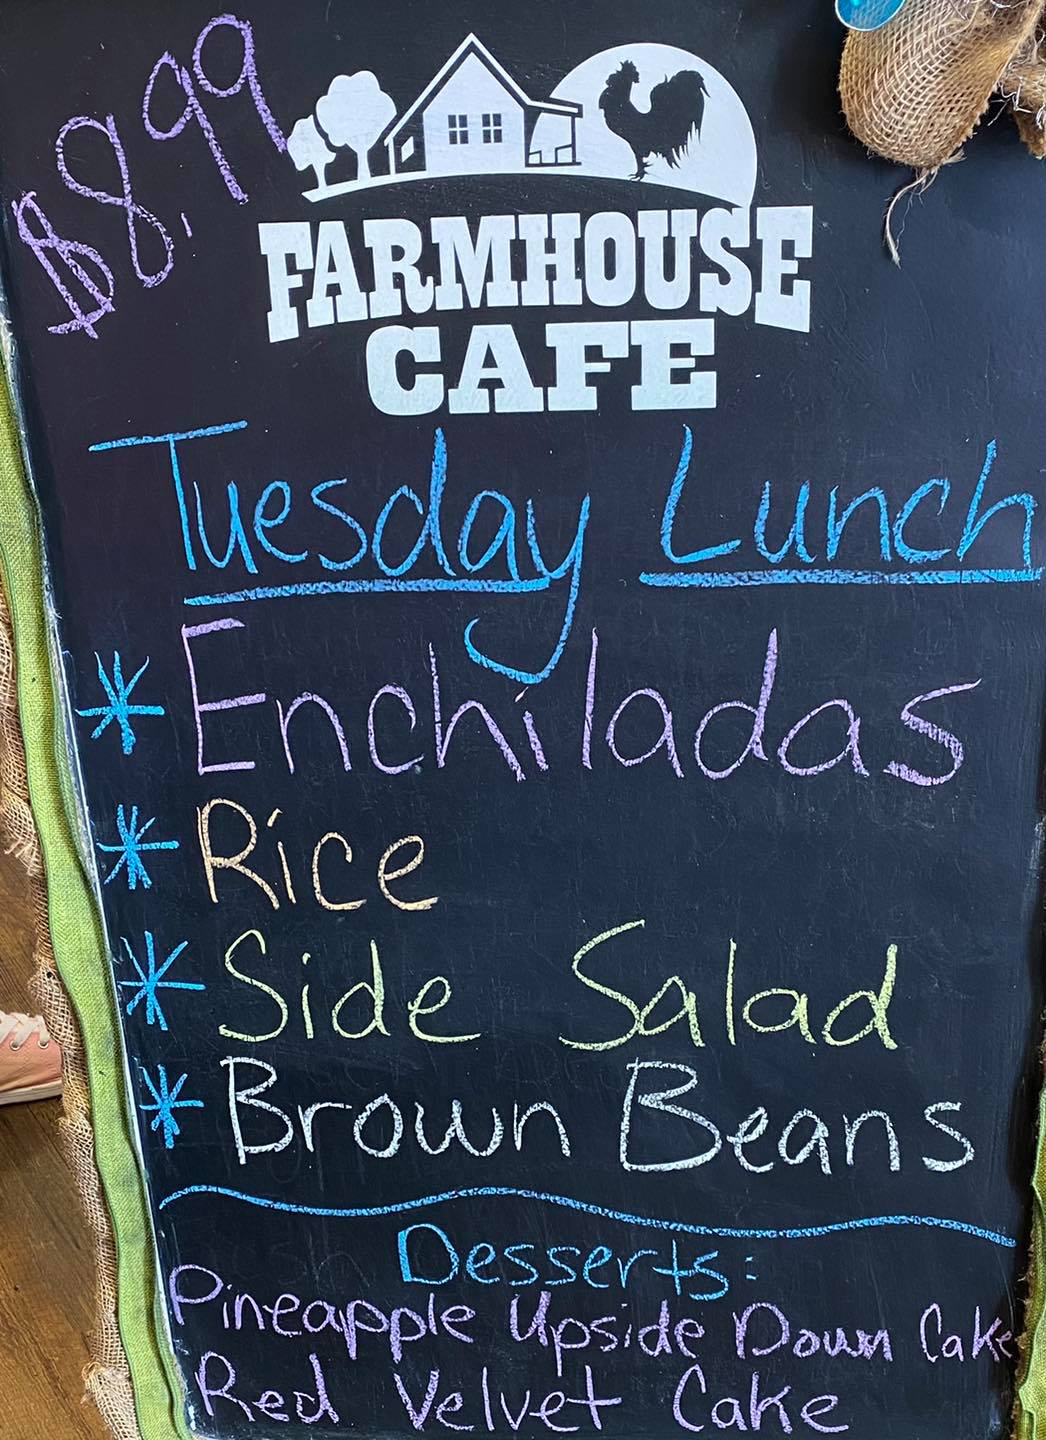 $8.99
FARMHOUSE
CAFE
Tuesday Lunch
* Enchiladas
* Rice
* Side Salad
* Brown Beans
Desserts:
Pineapple Upside Down Cake
Red Velvet Cake